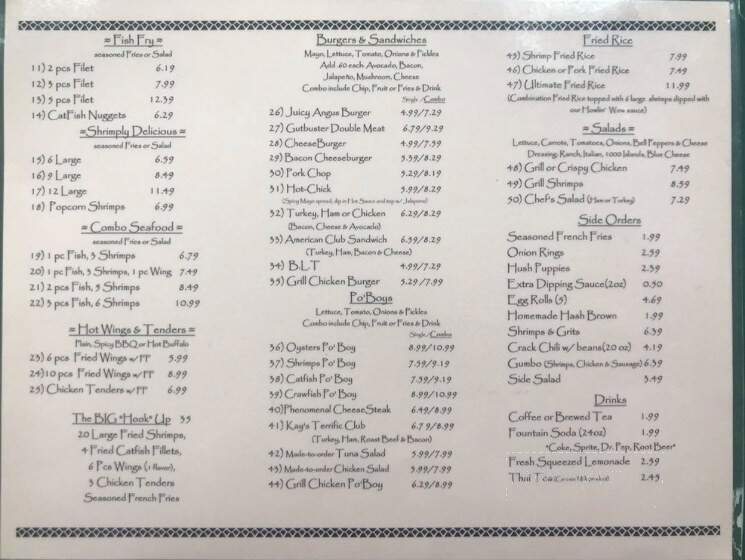 = Fish Fry =
seasoned Fries or Salad
11) 2 pcs Filet 6.19
12) 3 pcs Filet 7.99
13) 5 pcs Filet 12.39
14) CatFish Nuggets 6.29
=Shrimply Delicious =
seasoned Fries or Salad
15) 6 Large 6.59
16) 9 Large 8.49
17) 12 Large 11.49
18) Popcorn Shrimps 6.99
= Combo Seafood =
seasoned Fries or Salad
19) 1 pc Fish, 3 Shrimps 6.79
20) 1 pc Fish, 3 Shrimps, 1 pc Wing 7.49
21) 2 pcs Fish, 3 Shrimps 8.49
22) 3 pcs Fish, 6 Shrimps 10.99
= Hot Wings & Tenders =
Plain, Spicy BBQ or Hot Buffalo
23) 6 pcs Fried Wings w/FF 5.99
24)10 pcs Fried Wings w/FF 8.99
25) Chicken Tenders w/FF 6.99
The BIG "Hook" Up 35
20 Large Fried Shrimps,
4 Fried Catfish Fillets,
6 Pcs Wings (1 flavor),
3 Chicken Tenders
Seasoned French Fries
Burgers & Sandwiches
Mayo, Lettuce, Tomato, Onions & Pickles
Add .60 each Avocado, Bacon,
Jalapeño, Mushroom, Cheese
Combo include Chip, Fruit or Fries & Drink
Single/Combo
26) Juicy Angus Burger 4.99/7.29
27) Gutbuster Double Meat 6.79/9.29
28) CheeseBurger 4.99/7.59
29) Bacon Cheeseburger 5.59/8.29
30) Pork Chop 5.29/8.19
31) Hot-Chick 5.99/8.29
(Spicy Mayo spread, dip in Hot Sauce and top w/ Jalapeno)
32) Turkey, Ham or Chicken 6.29/8.29
(Bacon, Cheese & Avocado)
33) American Club Sandwich 6.39/8.29
(Turkey, Ham, Bacon & Cheese)
34) B.L.T 4.99/7.29
35) Grill Chicken Burger 5.29/7.99
Po'Boys
Lettuce, Tomato, Onions & Pickles
Combo include Chip, Fruit or Fries & Drink
Single/Combo
36) Oysters Po' Boy 8.99/10.99
37) Shrimps Po' Boy 7.39/9.19
38) Catfish Po' Boy 7.39/9.19
39) Crawfish Po' Boy 8.99/10.99
40)Phenomenal CheeseSteak 6.49/8.99
41) Kay's Terrific Club 6.79/8.99
(Turkey, Ham, Roast Beef & Bacon)
42) Made-to-order Tuna Salad 5.99/7.99
43) Made-to-order Chicken Salad 5.99/7.99
44) Grill Chicken Po'Boy 6.29/8.99
Fried Rice
45) Shrimp Fried Rice 7.99
46) Chicken or Pork Fried Rice 7.49
47) Ultimate Fried Rice 11.99
(Combination Fried Rice topped with 6 large shrimps dipped with
our Howlin' Wow sauce)
= Salads =
Lettuce, Carrots, Tomatoes, Onions, Bell Peppers & Cheese
Dressing: Ranch, Italian, 1000 Islands, Blue Cheese
48) Grill or Krispy Chicken 7.49
49) Grill Shrimps 8.59
50) Chef's Salad (Ham or Turkey) 7.29
Side Orders
Seasoned French Fries 1.99
Onion Rings 2.59
Hush Puppies 2.59
Extra Dipping Sauce(2oz) 0.50
Egg Rolls (3) 4.69
Homemade Hash Brown 1.99
Shrimps & Grits 6.59
Crack Chili w/ beans(20 oz) 4.19
Gumbo (Shrimps, Chicken & Sausage) 6.59
Side Salad 3.49
Drinks
Coffee or Brewed Tea 1.99
Fountain Soda (24oz) 1.99
"Coke, Sprite, Dr. Pep, Root Beer"
Fresh Squeezed Lemonade 2.59
Thai Tea 2.45